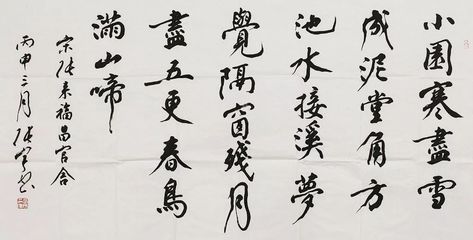 小園寒盡雪
成泥堂角方
池水接溪夢
覺隔窗殘月
盡五更春鳥
滿山啼
宋張耒福昌官舍
丙申三月張書